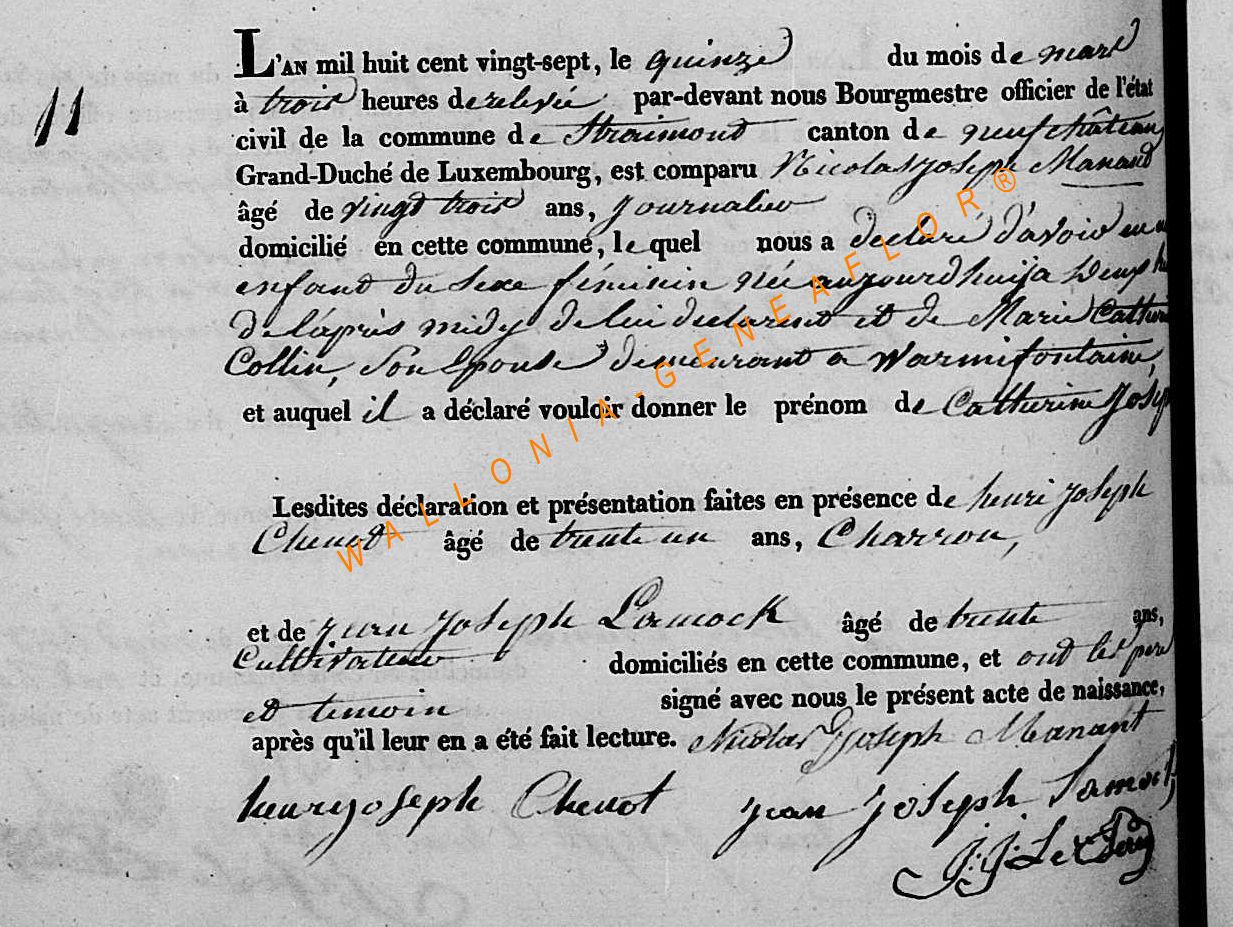 L'AN mil huit cent vingt-sept, le quinze du mois de mars
11
à trois heures de relevée par-devant nous Bourgmestre officier de l'état
civil de la commune de Straimont canton de neufchâteau
Grand-Duché de Luxembourg, est comparu Nicolas Joseph Manand
âgé de vingt trois ans, journalier
domicilié en cette commune, le quel nous a declaré d'avoir eu
enfant du sexe féminin née aujourd'huij a deux
de l'après midy de lui declarant et de Marie Catherine
Collin, son Epouse demeurant a Warmifontaine,
et auquel il a déclaré vouloir donner le prénom de Catherine Josep
Lesdites déclaration et présentation faites en présence de henri joseph
Chenot âgé de trente un ans, Charron,
et de jean joseph Lamock âgé de trente ans,
Cultivateur domiciliés en cette commune, et ont les pere
et temoin signé avec nous le présent acte de naissance,
après qu'il leur en a été fait lecture. Nicolas Joseph Manant
henry joseph Chenot jean joseph Lamock
J: J: Le
WALLONIA-GENEAFLOR®